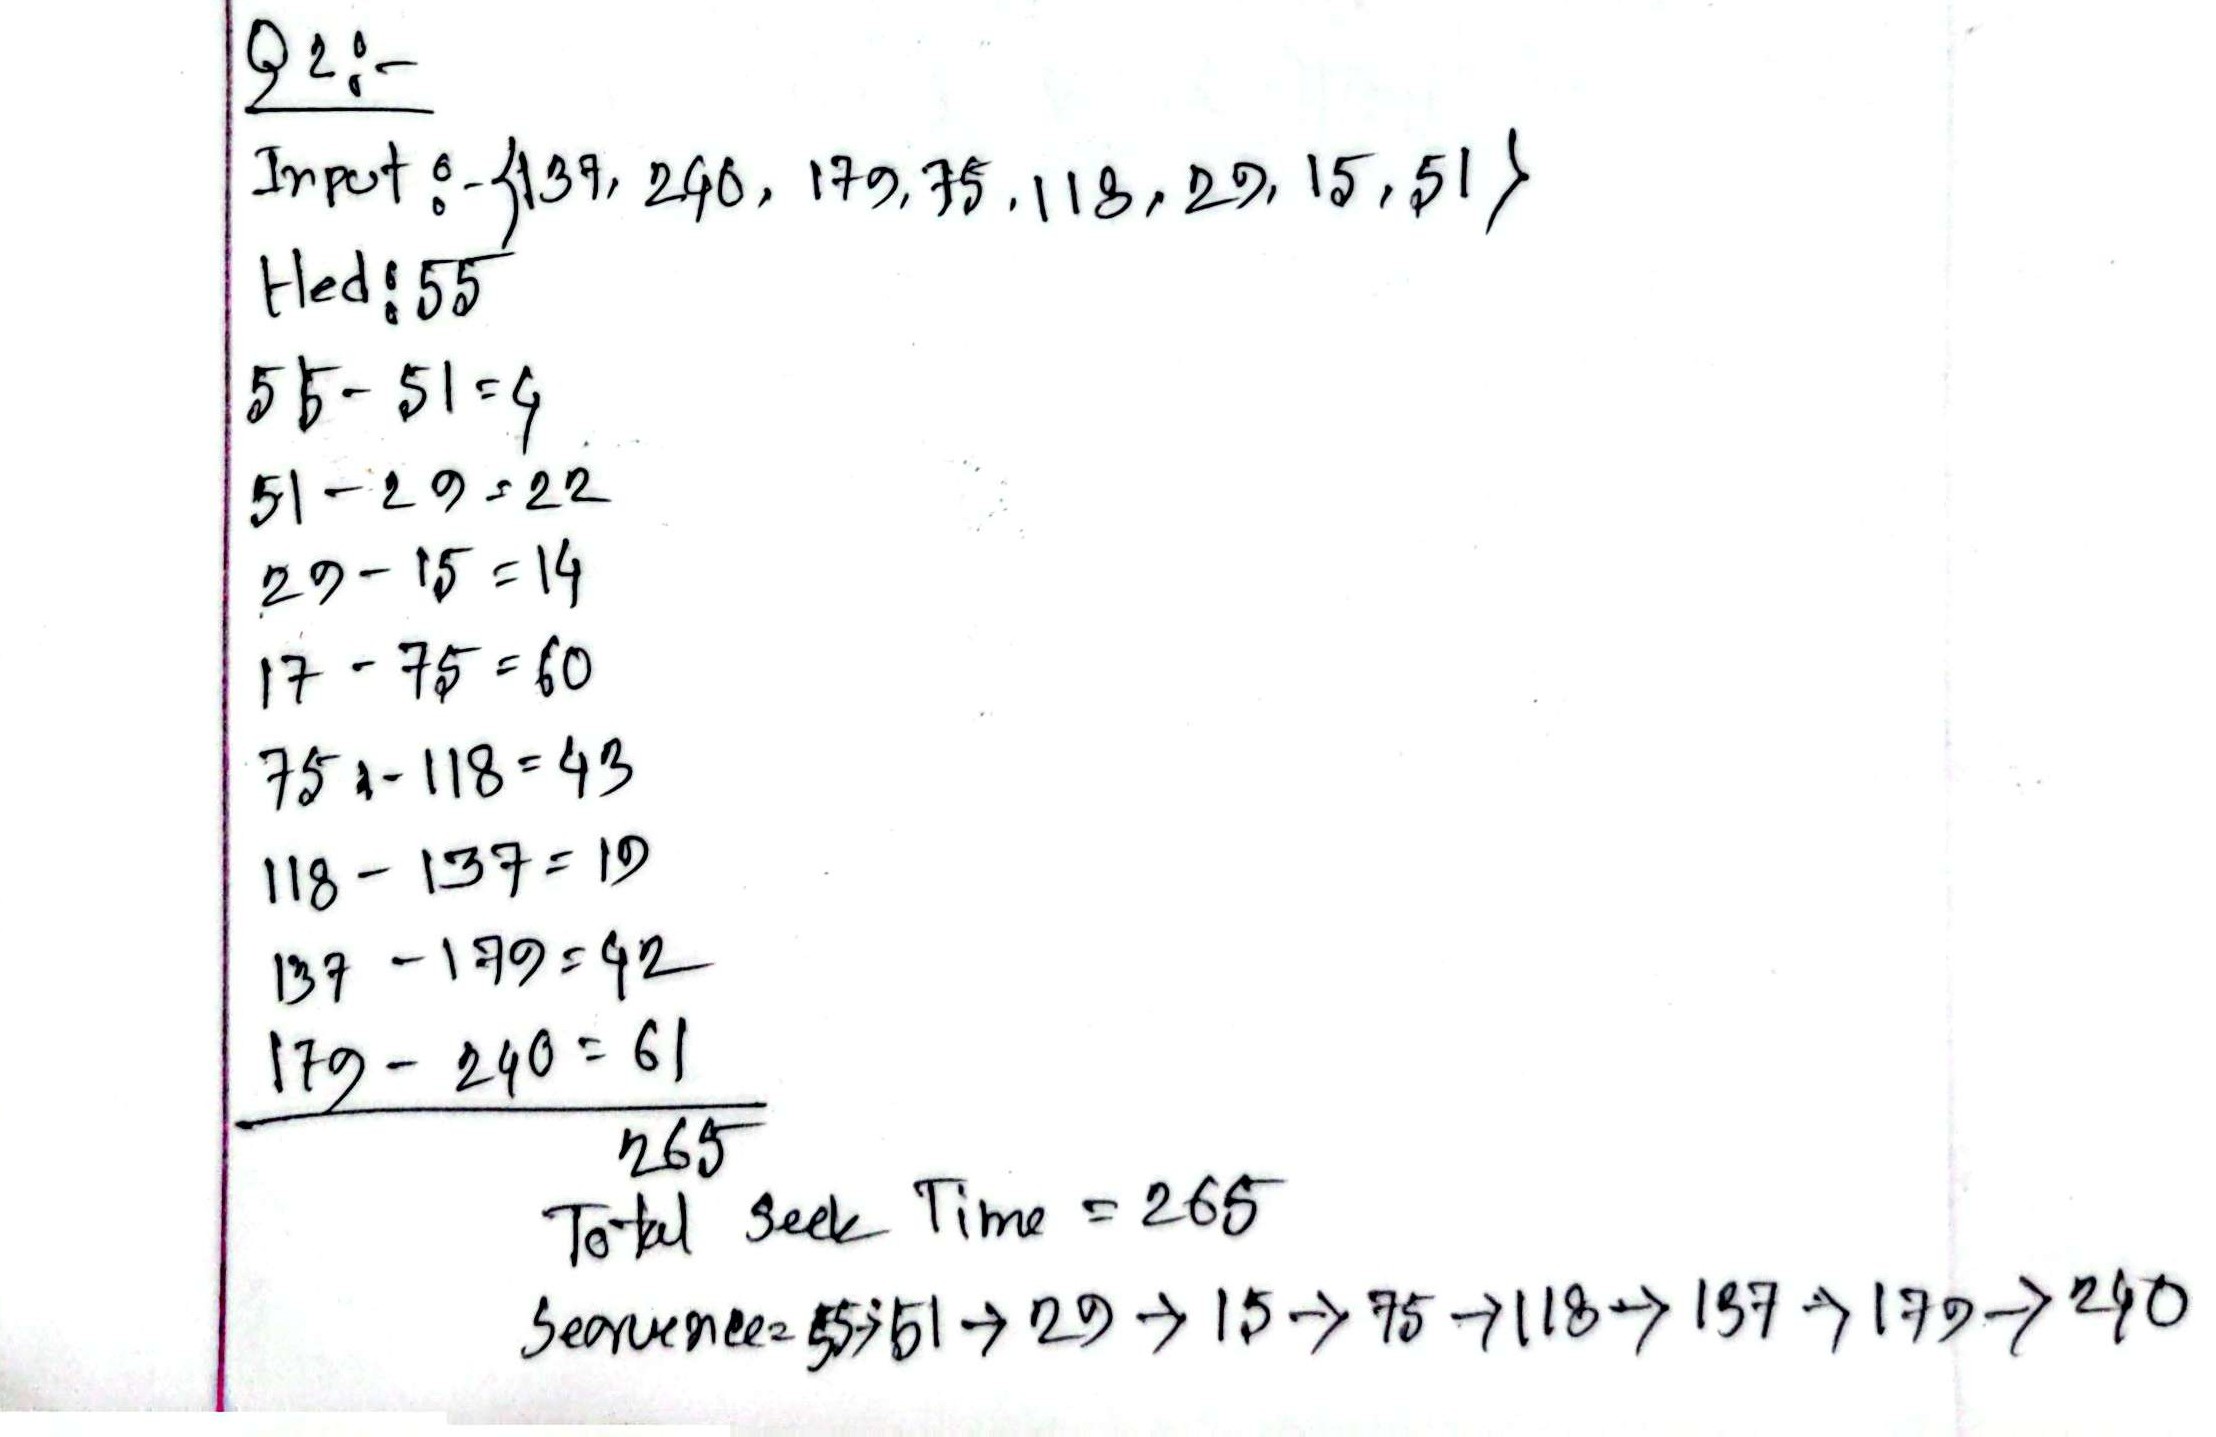 Q2:-
Input :- {137, 240, 179, 75, 118, 29, 15, 51}
Hed: 55
55 - 51 = 4
51 - 29 = 22
29 - 15 = 14
17 - 75 = 60
75 - 118 = 43
118 - 137 = 19
137 - 179 = 42
179 - 240 = 61
265
Total Seek Time = 265
Seavuence = 55 → 51 → 29 → 15 → 75 → 118 → 137 → 179 → 240